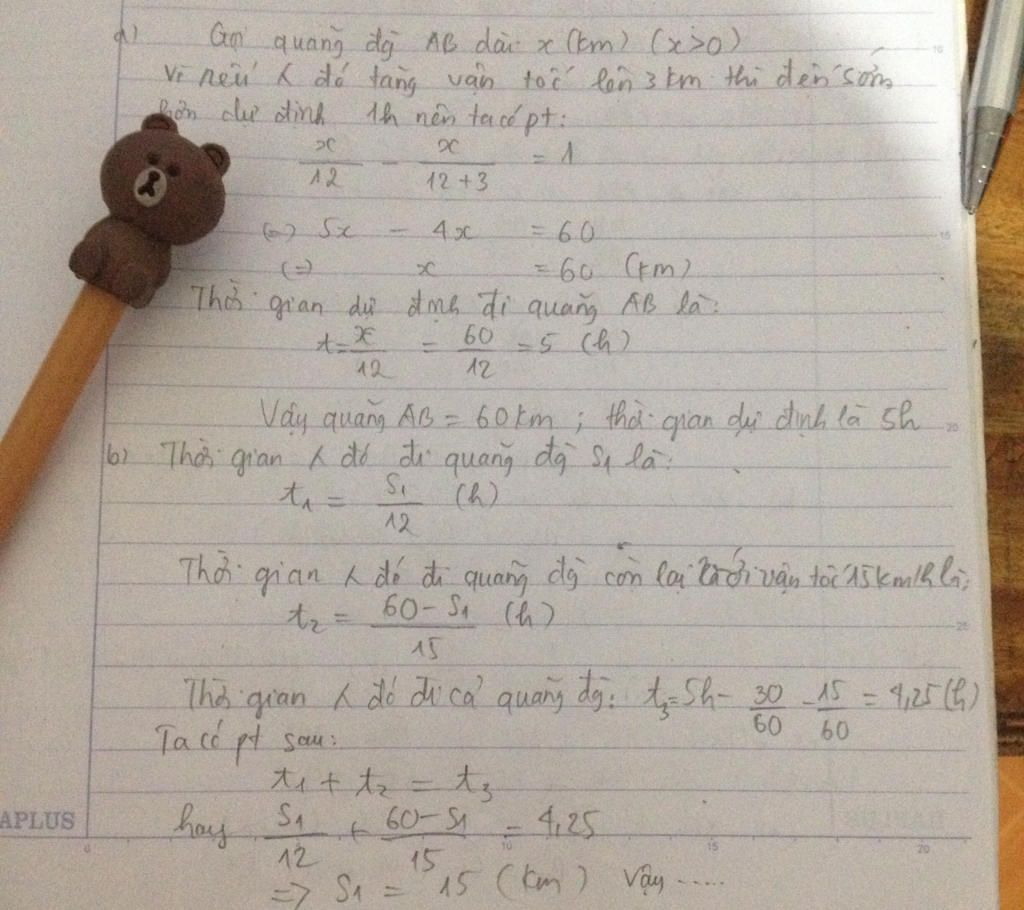 a) Gọi quãng đg AB dài x (km) (x>0)
Vì nếu λ đó tăng vận tốc lên 3 km thì đến sớm
hơn dự định 1h nên ta có pt:
x/12 - x/(12+3) = 1
(=) 5x - 4x = 60
(=) x = 60 (km)
Thời gian dự định đi quãng AB là:
t = x/12 = 60/12 = 5 (h)
Vậy quãng AB = 60km ; thời gian dự định là 5h
b) Thời gian λ đó đi quãng đg S1 là:
t1 = S1/12 (h)
Thời gian λ đó đi quãng đg còn lại với vận tốc 15km/h là:
t2 = (60-S1)/15 (h)
Thời gian λ đó đi cả quãng đg: t3 = 5h - 30/60 - 15/60 = 4,25 (h)
Ta có pt sau:
t1 + t2 = t3
hay S1/12 + (60-S1)/15 = 4,25
=> S1 = 15 (km) Vậy .....
APLUS
5
10
15
20
10
15
20
25